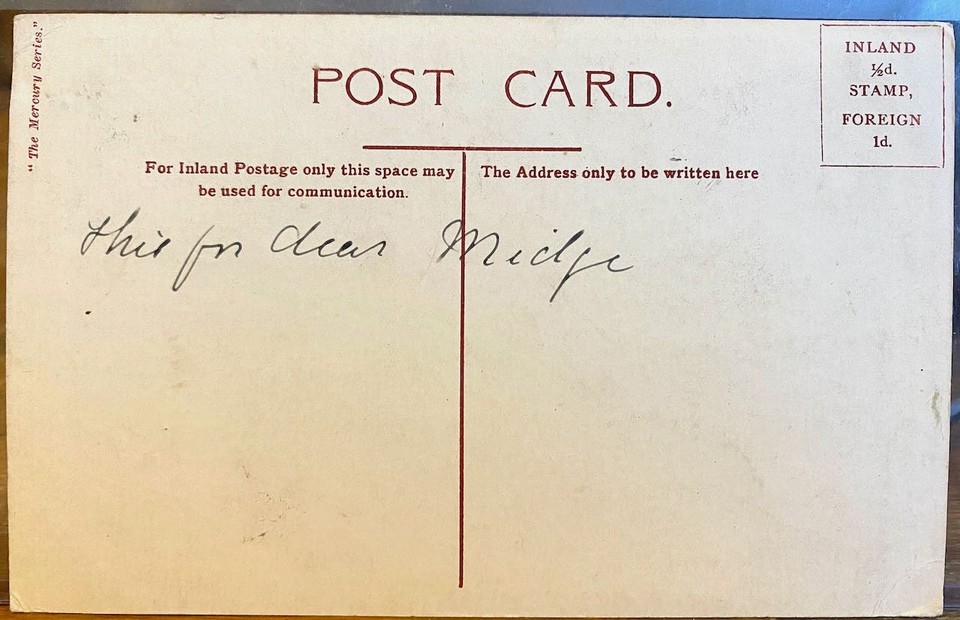 "The Mercury Series."
POST CARD.
INLAND
½d.
STAMP,
FOREIGN
1d.
For Inland Postage only this space may
be used for communication.
The Address only to be written here
This for dear Midge